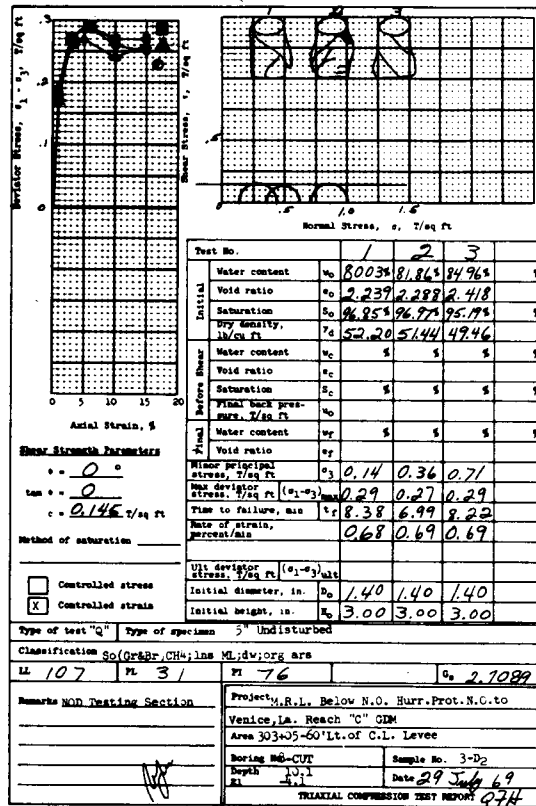 Deviator Stress, σ1 - σ3, T/sq ft
.3
.2
.1
0
0 5 10 15 20
Axial Strain, %
Shear Stress, τ, T/sq ft
1 3
.5
.5 1.0 1.5
Normal Stress, σ, T/sq ft
Shear Strength Parameters
φ = 0 °
tan φ = 0
c = 0.145 T/sq ft
Method of saturation
Controlled stress
X Controlled strain
Test No. 1 2 3
Initial
Water content w0 80.03% 81.86% 84.96% %
Void ratio e0 2.239 2.288 2.418
Saturation S0 96.85% 96.97% 95.19% %
Dry density, lb/cu ft γd 52.20 51.44 49.46
Before Shear
Water content wc % % % %
Void ratio ec
Saturation Sc % % % %
Final back pressure, T/sq ft u0
Final
Water content wf % % % %
Void ratio ef
Minor principal stress, T/sq ft σ3 0.14 0.36 0.71
Max deviator stress, T/sq ft (σ1-σ3)max 0.29 0.27 0.29
Time to failure, min tf 8.38 6.99 8.22
Rate of strain, percent/min 0.68 0.69 0.69
Ult deviator stress, T/sq ft (σ1-σ3)ult
Initial diameter, in. D0 1.40 1.40 1.40
Initial height, in. H0 3.00 3.00 3.00
Type of test "Q" Type of specimen 5" Undisturbed
Classification So(Gr&Br,CH4;lns ML;dw;org ars
LL 107 PL 31 PI 76 Gs 2.7089
Remarks NOD Testing Section
Project M.R.L. Below N.O. Hurr.Prot.N.O.to
Venice,La. Reach "C" GDM
Area 303+05-60'Lt.of C.L. Levee
Boring No. -CUT Sample No. 3-D2
Depth 10.1
El
Date 29 July 69
TRIAXIAL COMPRESSION TEST REPORT